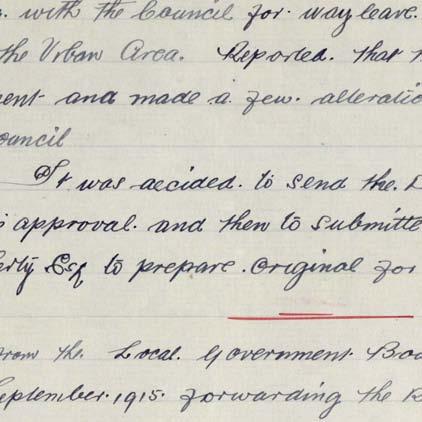 with the Council for. way leave.
the Urban Area. Reported. that
ent and made a few. alteratio
ouncil
It was decided. to send the. D
approval. and then to submitte
erty Esq to prepare. Original for
from the. Local. Government Boa
September. 1915. forwarding the R